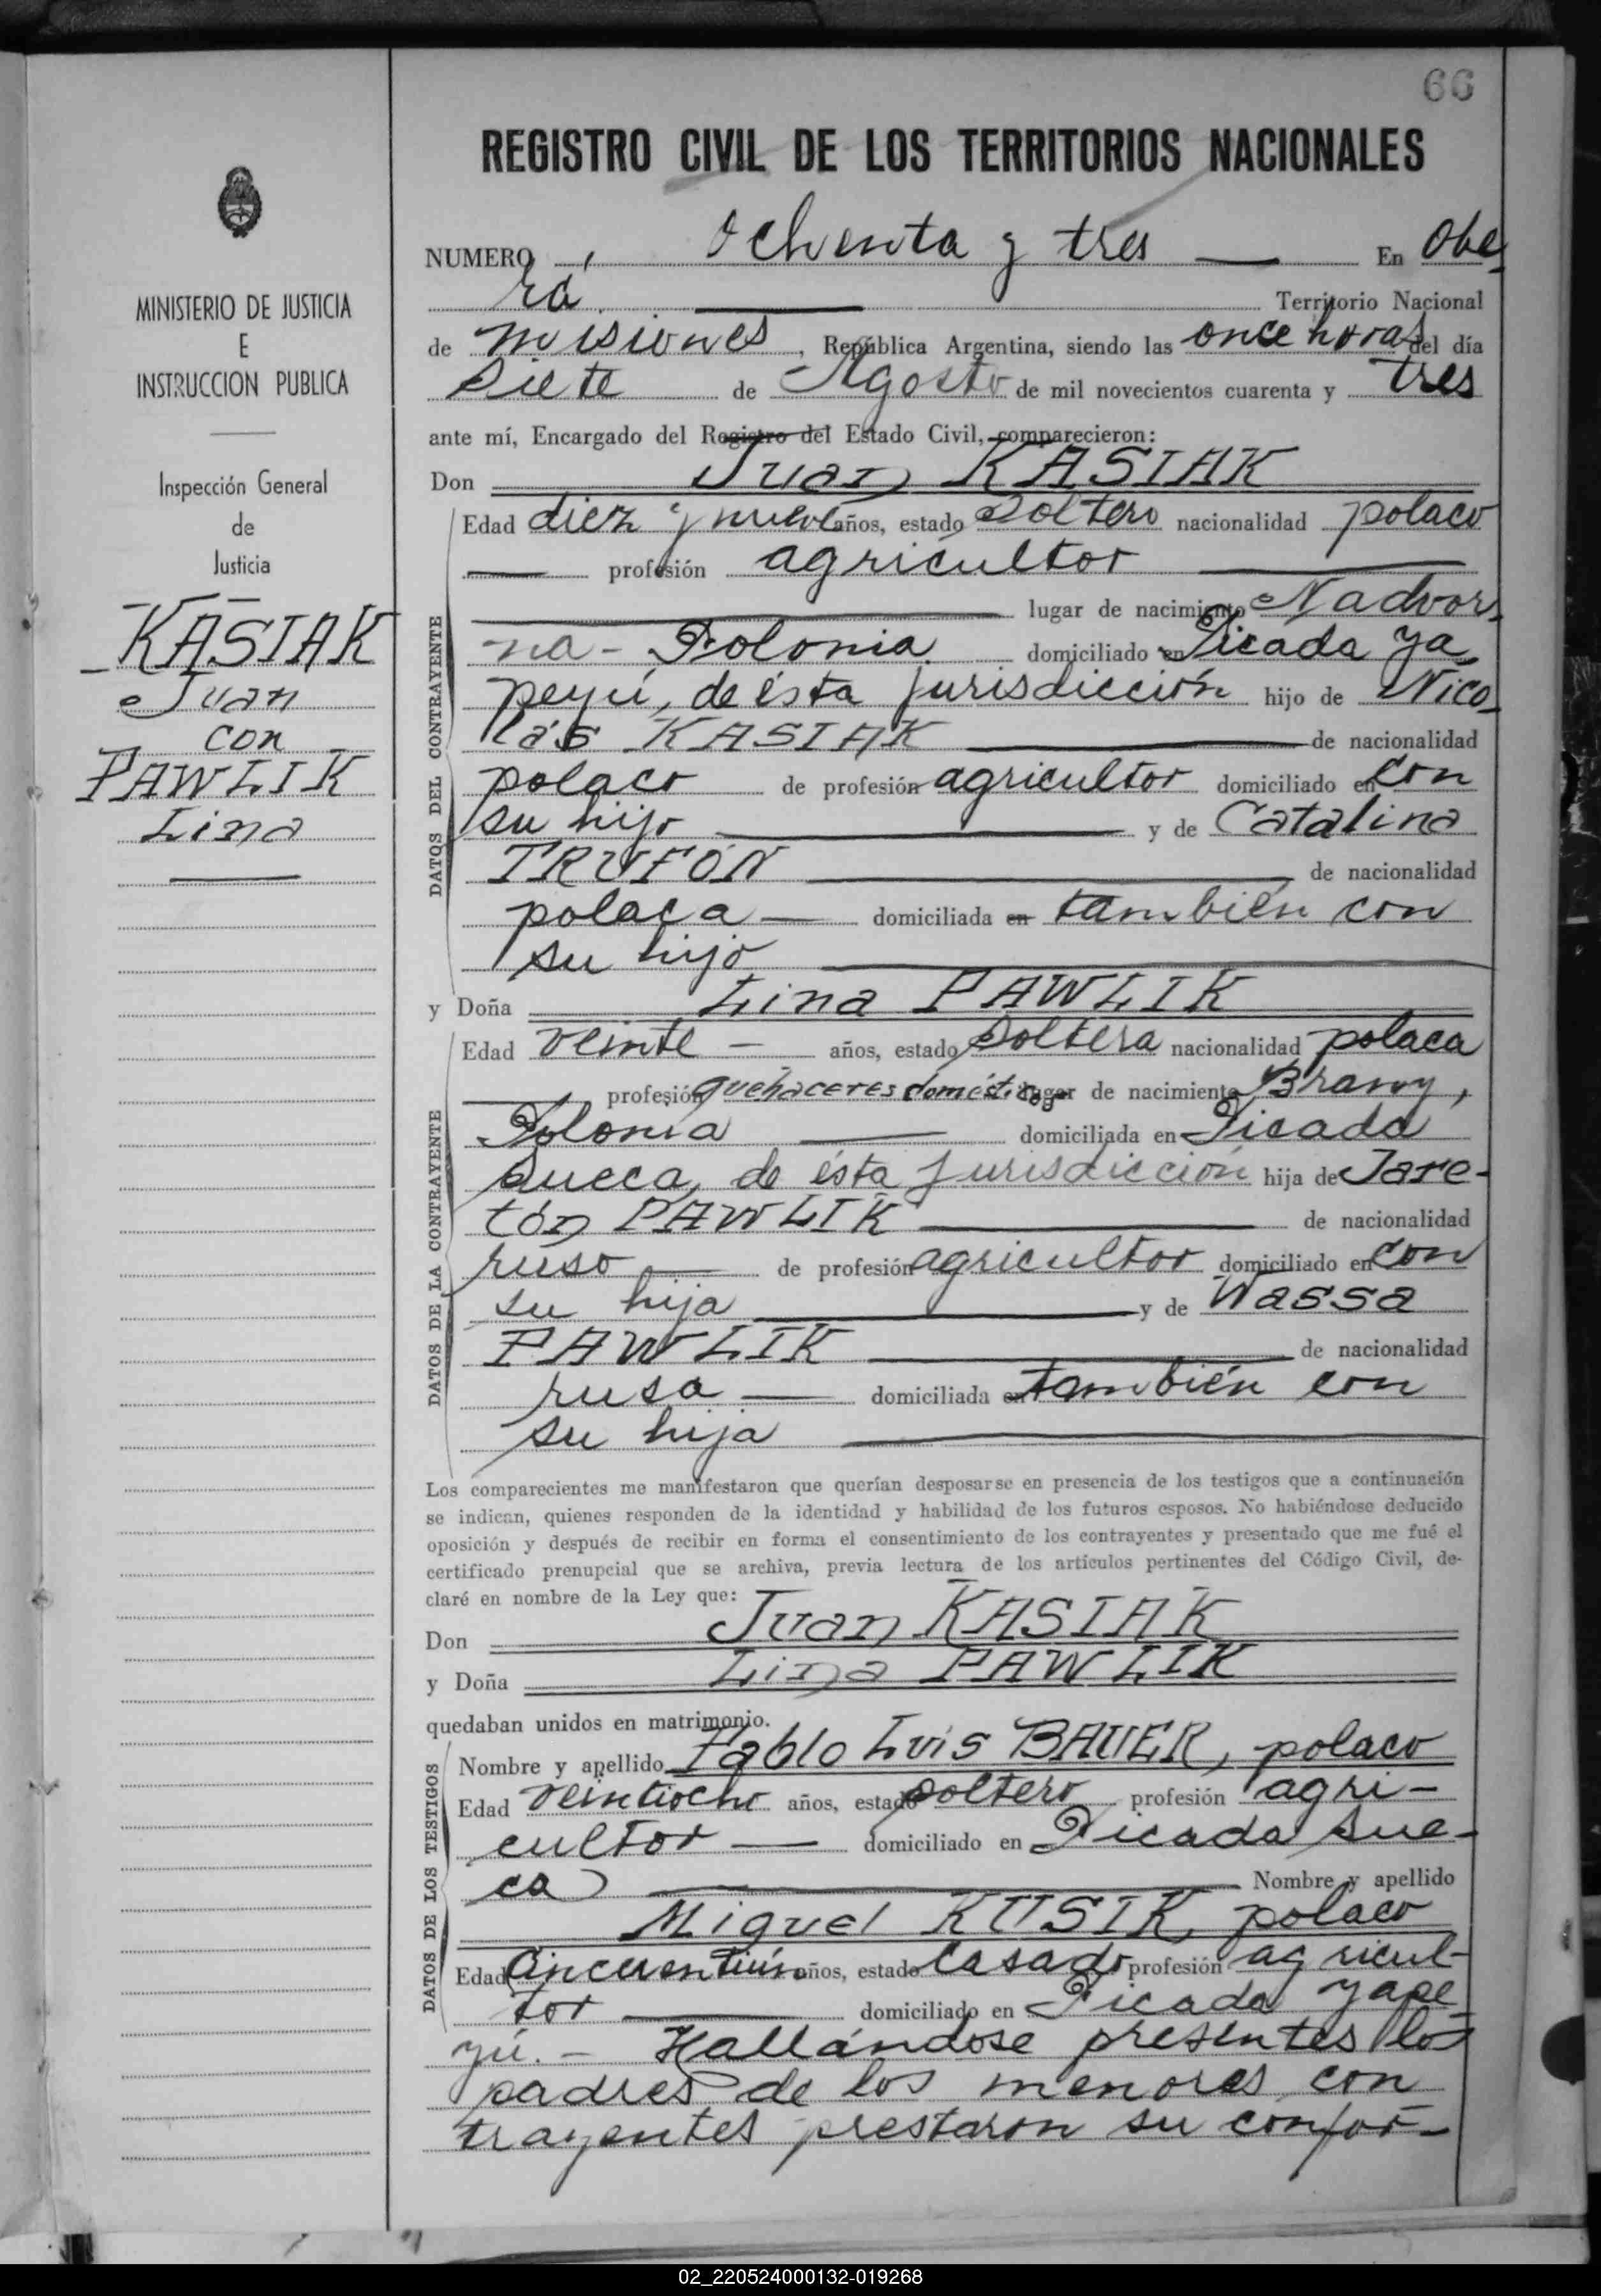 66
REGISTRO CIVIL DE LOS TERRITORIOS NACIONALES
MINISTERIO DE JUSTICIA
E
INSTRUCCION PUBLICA
Inspección General
de
Justicia
KASIAK
Juan
con
PAWLIK
Lina
NUMERO Ochenta y tres En Obe-
rá Territorio Nacional
de Misiones, República Argentina, siendo las once horas del día
siete de Agosto de mil novecientos cuarenta y tres
ante mí, Encargado del Registro del Estado Civil, comparecieron:
Don Juan KASIAK
DATOS DEL CONTRAYENTE
Edad diez y nueve años, estado soltero nacionalidad polaco
profesión agricultor
lugar de nacimiento Nadvor-
na - Polonia domiciliado en Picada Ya-
peyú, de ésta jurisdicción hijo de Nico-
lás KASIAK de nacionalidad
polaco de profesión agricultor domiciliado en con
su hijo y de Catalina
TRUFON de nacionalidad
polaca domiciliada en también con
su hijo
y Doña Lina PAWLIK
DATOS DE LA CONTRAYENTE
Edad veinte - años, estado soltera nacionalidad polaca
profesión quehaceres domésticos lugar de nacimiento
Polonia domiciliada en Picada
Sueca, de ésta jurisdicción hija de Jare-
tón PAWLIK de nacionalidad
ruso de profesión agricultor domiciliado en con
su hija y de Wassa
PAWLIK de nacionalidad
rusa domiciliada en también con
su hija
Los comparecientes me manifestaron que querían desposarse en presencia de los testigos que a continuación
se indican, quienes responden de la identidad y habilidad de los futuros esposos. No habiéndose deducido
oposición y después de recibir en forma el consentimiento de los contrayentes y presentado que me fué el
certificado prenupcial que se archiva, previa lectura de los artículos pertinentes del Código Civil, de-
claré en nombre de la Ley que:
Don Juan KASIAK
y Doña Lina PAWLIK
quedaban unidos en matrimonio.
DATOS DE LOS TESTIGOS
Nombre y apellido Pablo Luis BAUER, polaco
Edad veintiocho años, estado soltero profesión agri-
cultor domiciliado en Picada Sue-
ca Nombre y apellido
Miguel KUSIK, polaco
Edad cincuentiún años, estado casado profesión agricul-
tor domiciliado en Picada Yape-
yú. - Hallándose presentes los
padres de los menores con
trayentes prestaron su confor-
02_220524000132-019268